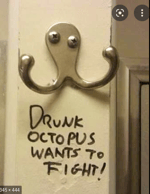 DRUNK
OCTOPUS
WANTS TO
FIGHT!
345 × 444